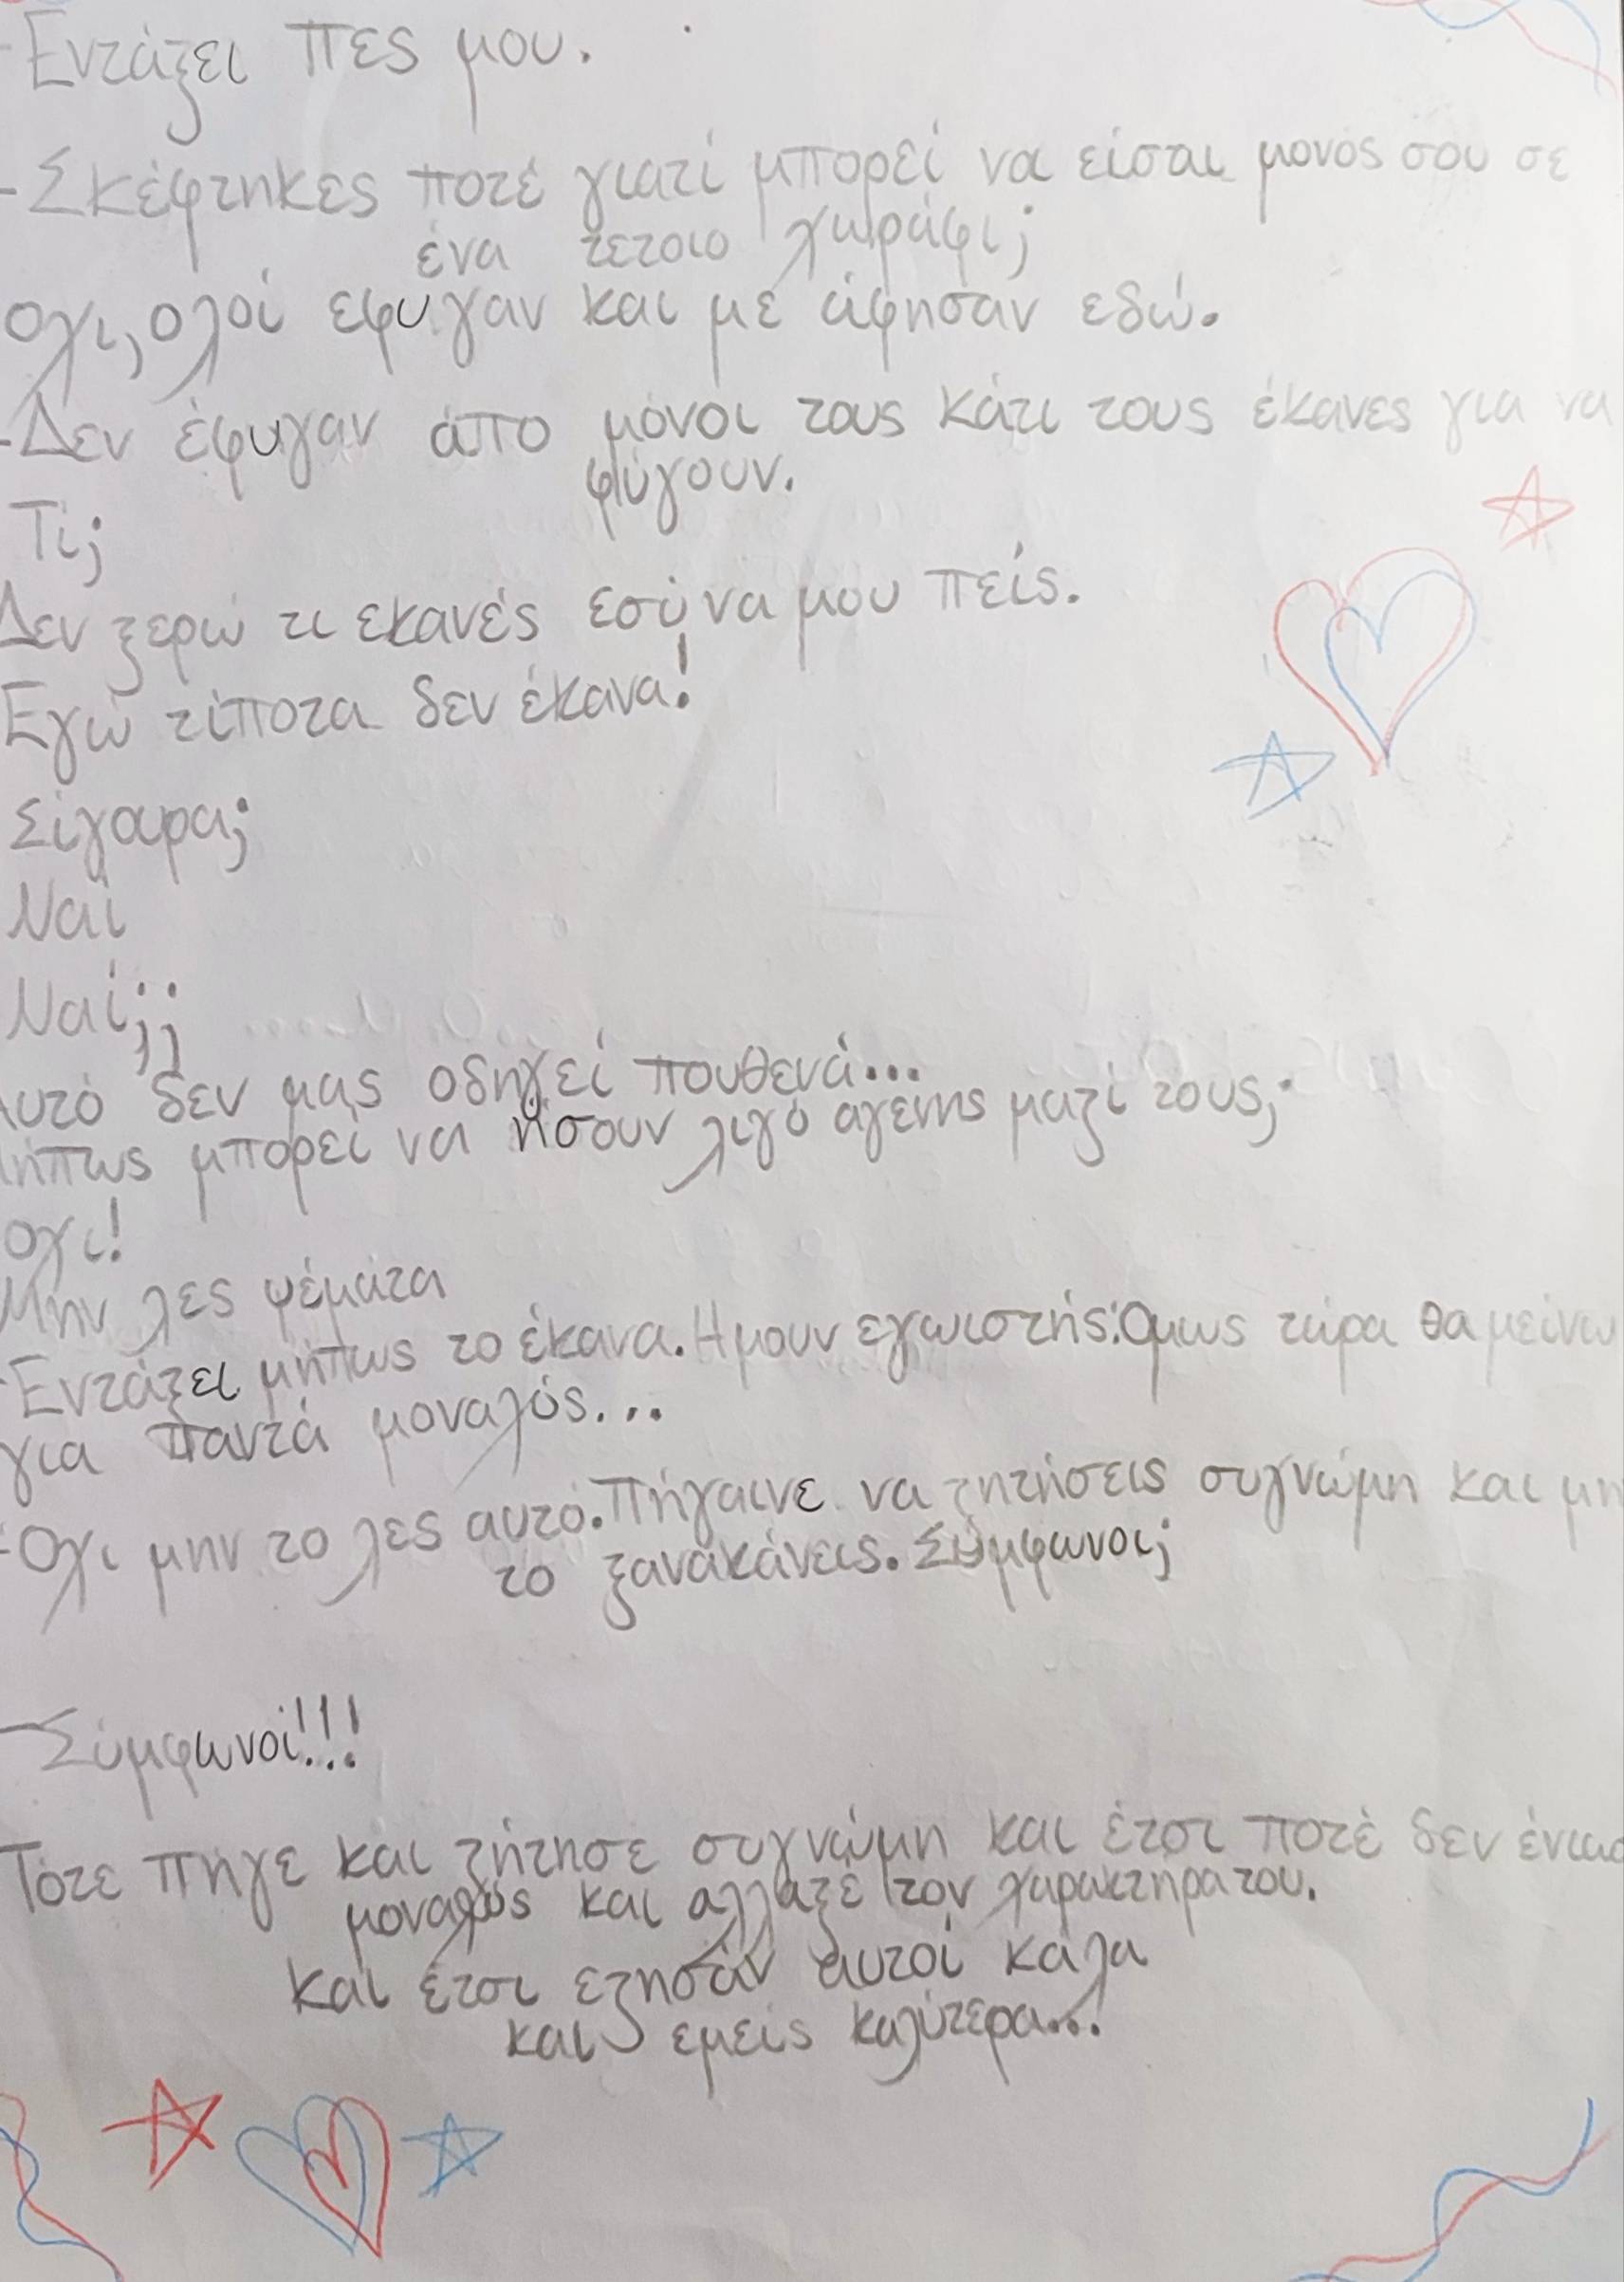 -Εντάξει πες μου.
-Σκέφτηκες ποτέ γιατί μπορεί να είσαι μονός σου σε
ένα τετοιο χωράφι;
Οχι, ολοί εφυγαν και με άφησαν εδώ.
-Δεν έφυγαν άπο μόνοι τους κάτι τους έκανες για να
φύγουν.
Τί;
Δεν ξερώ τι εκανές εσύ να μου πείς.
Εγώ τίποτα δεν έκανα!
Σίγαρα;
Ναί
Ναί;;
Αυτό δεν μας οδηγεί πουθενά...
Μήπως μπορεί να ήσουν λιγό αγενής μαζί τους;
Οχι!
Μην λες ψέματα
-Εντάξει μήπως το έκανα. Ημουν εγωιστής. Όμως τώρα θα μείνω
για παντά μοναχός...
-Οχι μην το λες αυτό. Πήγαινε να ζητήσεις συγνώμη και μη
το ξανακάνεις. Σύμφωνοι;
-Σύμφωνοί!!!
Τότε πήγε και ζήτησε συγνώμη και έτσι ποτέ δεν ένιωσ
μοναχός και αλλαξέ τον χαρακτήρα του.
και έτσι εζησάν αυτοί καλα
και εμείς καλύτερα...!